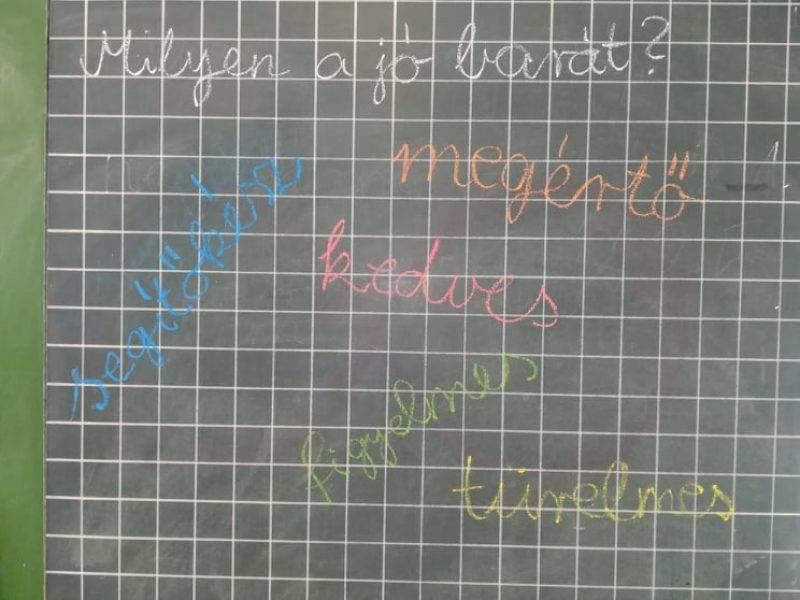 Milyen a jó barát?
megértő
segítőkész
kedves
figyelmes
türelmes